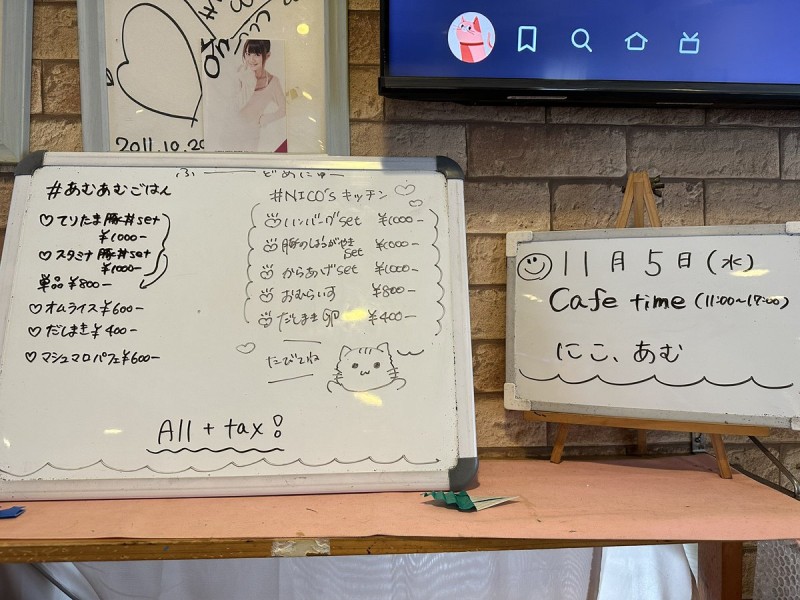 2011.10.20
ふーどめにゅー
#あむあむごはん
♡てりたま豚丼set
¥1000-
♡スタミナ豚丼set
¥1000-
単品¥800-
♡オムライス¥600-
♡だしまき¥400-
♡マシュマロパフェ¥600-
#NICO'sキッチン
ハンバーグset ¥1000-
豚のしょうがやきset ¥1000-
からあげset ¥1000-
おむらいす ¥800-
だしまき卵 ¥400-
たべてね
All + tax!
11月5日(水)
Cafe time (11:00〜17:00)
にこ、あむ